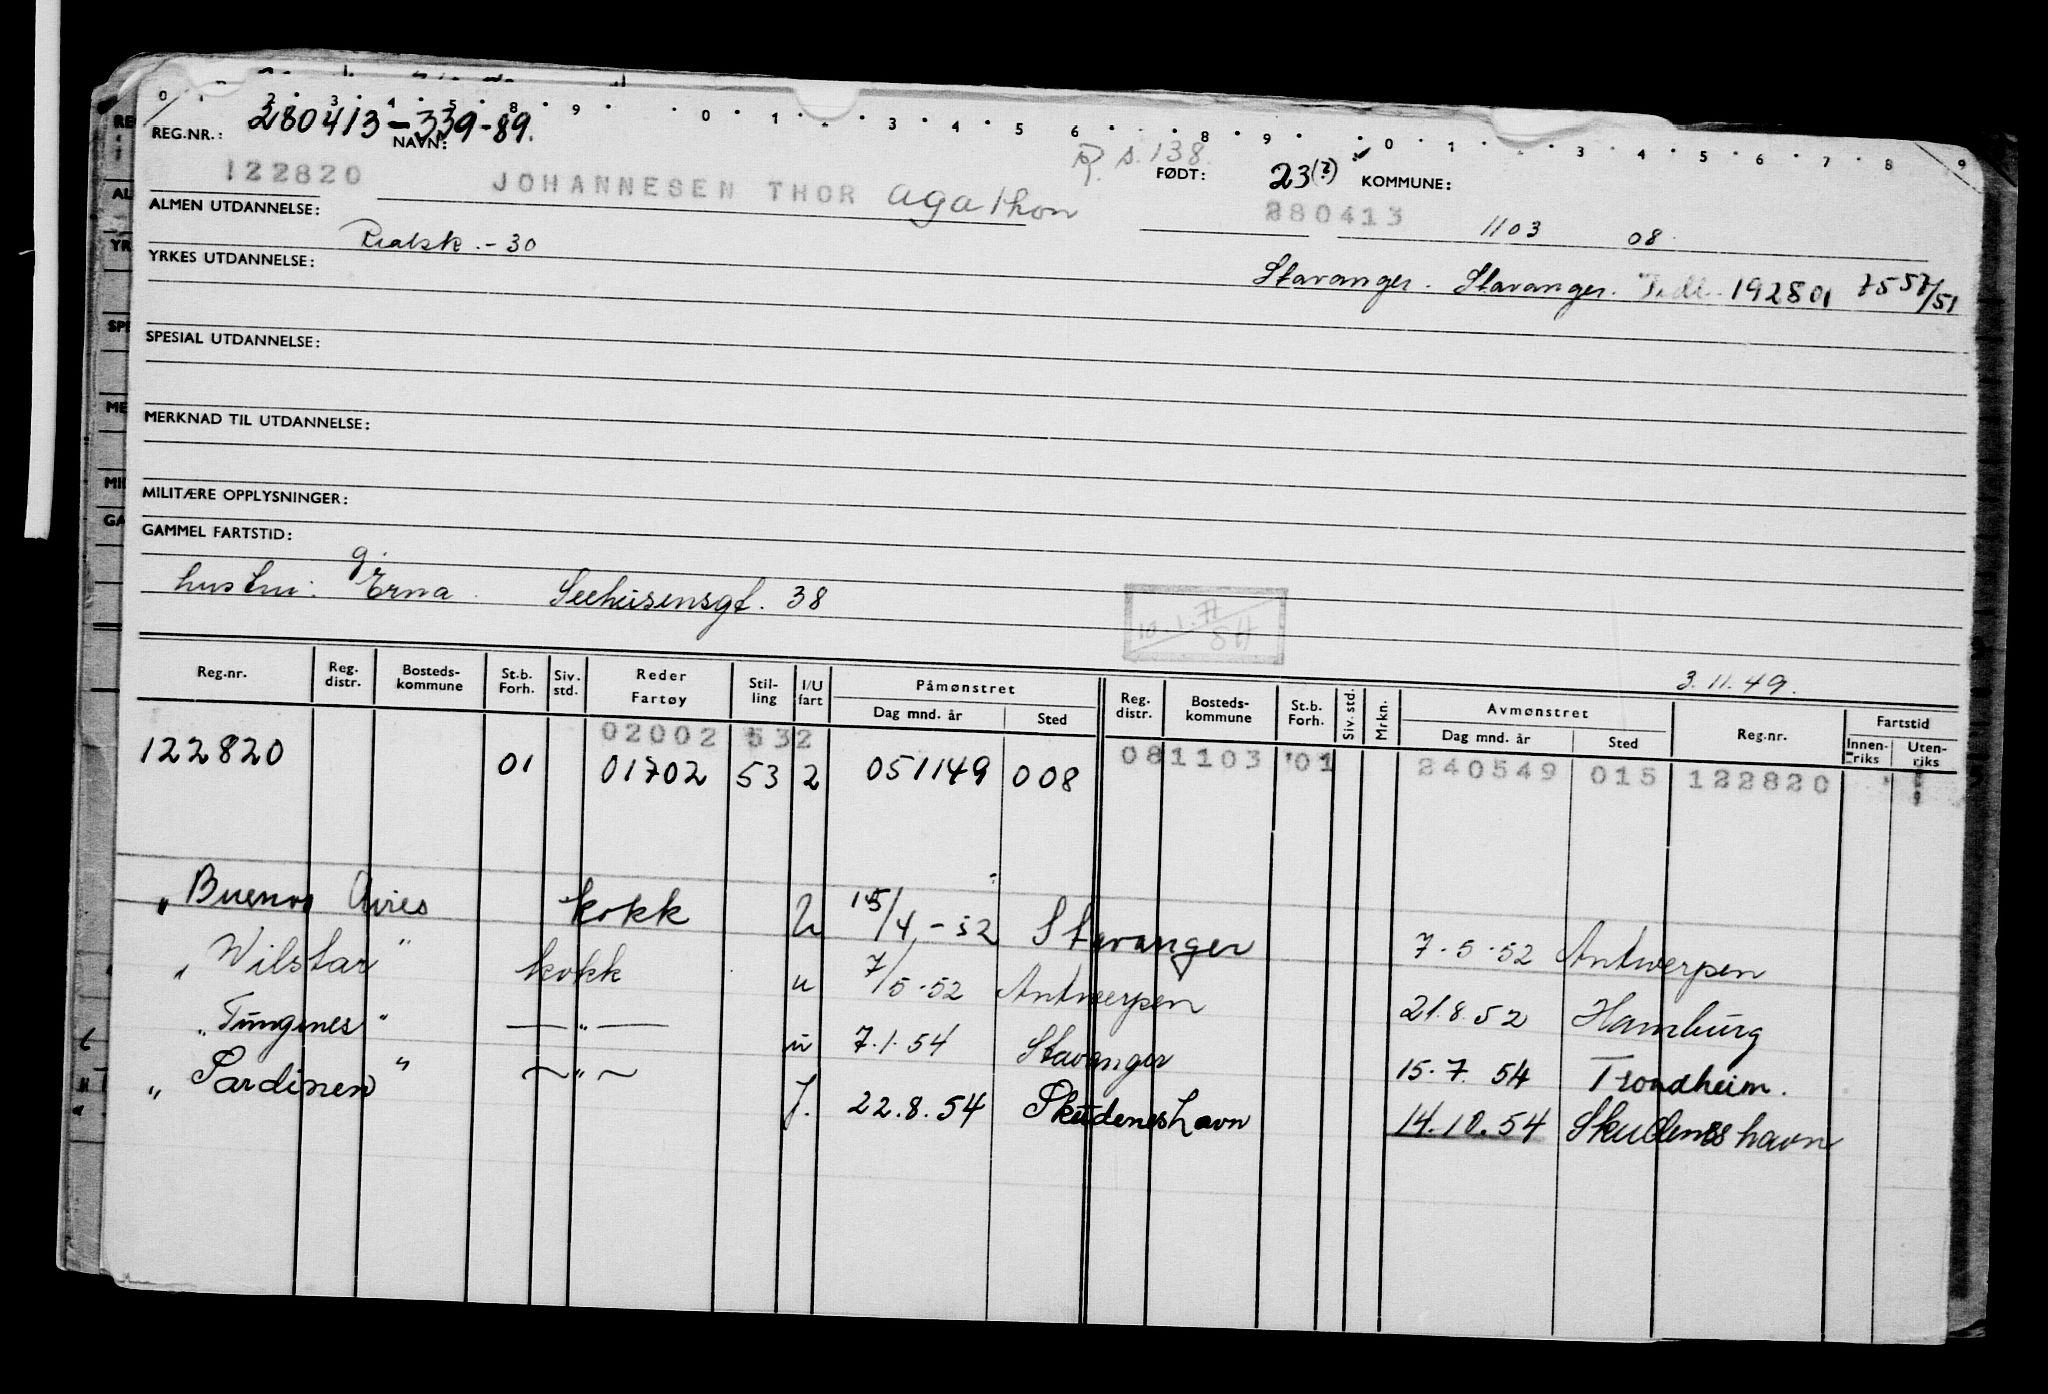 0 1 2 · 3 · 4 · 5 · 8 · 9 · 0 · 1 · 3 · 4 · 5 6 · 8 · 9 · 0 · 1 · 3 · 4 · 5 · 6 · 7 · 8 · 9
REG.NR.: 280413-339-89.
NAVN:
R. s. 138.
FØDT: 23(?) KOMMUNE:
122820 JOHANNESEN THOR Agathon 280413 1103 08
ALMEN UTDANNELSE:
Realsk. - 30
YRKES UTDANNELSE:
Stavanger. Stavanger. Tidl. 192801 7557/51
SPESIAL UTDANNELSE:
MERKNAD TIL UTDANNELSE:
MILITÆRE OPPLYSNINGER:
GAMMEL FARTSTID:
g.
hustru: Erna Seehusensgt. 38
3.11.49.
Reg.nr. Reg. distr. Bosteds-kommune St.b. Forh. Siv. std. Reder Fartøy Stil-ling I/U fart Påmønstret Reg. distr. Bosteds-kommune St.b. Forh. Siv. std. Mrkn. Avmønstret Reg.nr. Fartstid
Dag mnd. år Sted Dag mnd. år Sted Innen-riks Uten-riks
02002 532 081103 01 240549 015 122820
122820 01 01702 53 2 051149 008
" Buenos Aires kokk U 15/4-52 Stavanger 7.5.52 Antwerpen
" Wilstar " kokk u 7/5-52 Antwerpen 21.8.52 Hamburg
" Tungenes " — " — u 7.1.54 Stavanger 15.7.54 Trondheim.
" Sardinen " ~ " ~ J. 22.8.54 Skudeneshavn 14.10.54 Skudeneshavn